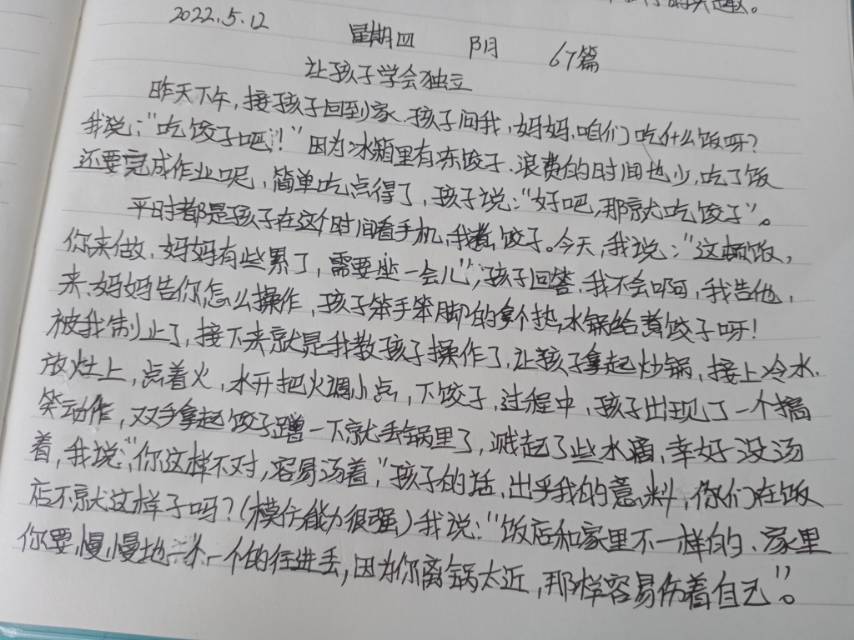 的关趣。
2022.5.12 星期四 阴 67篇
让孩子学会独立
昨天下午,接孩子回到家,孩子问我,妈妈,咱们吃什么饭呀?
我说:"吃饺子吧!"因为冰箱里有冻饺子、浪费的时间也少,吃了饭
还要完成作业呢,简单吃点得了,孩子说:"好吧,那就吃饺子"。
平时都是孩子在这个时间看手机,我煮饺子。今天,我说:"这顿饭,
你来做,妈妈有些累了,需要坐一会儿",孩子回答,我不会啊,我告他,
来,妈妈告你怎么操作,孩子笨手笨脚的拿个热水锅给煮饺子呀!
被我制止了,接下来就是我教孩子操作了,让孩子拿起炒锅,接上冷水,
放灶上,点着火,水开把火调小点,下饺子,过程中,孩子出现了一个搞
笑动作,双手拿起饺子蹭一下就丢锅里了,溅起了些水滴,幸好没汤
着,我说,"你这样不对,容易汤着,"孩子的话,出乎我的意料,你们在饭
店不就这样子吗?(模仿能力很强)我说:"饭店和家里不一样的、家里
你要,慢,慢地一个一个的往进丢,因为你离锅太近,那样容易伤着自己"。